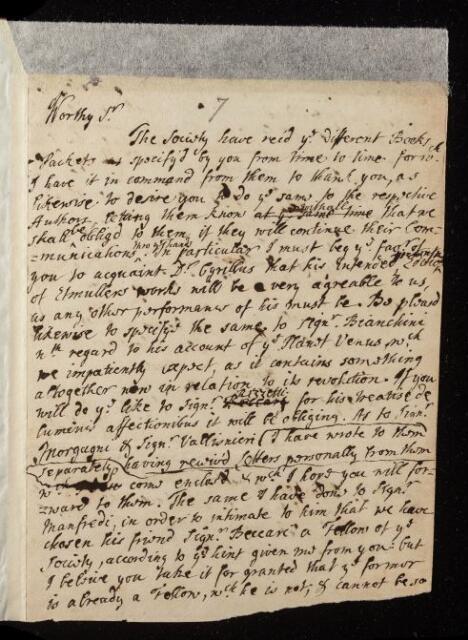 7
Worthy Sr
The Society have rec'd ye different Books &
Packets as specify'd by you from time to time for wch
I have it in command from them to thank you, as
likewise to desire you to do ye same to the respective
Authors, letting them know at ye same time that we
shall be oblig'd to them if they will continue their Com-
-munications thro' yr hands. In particular I must beg ye favr of
you to acquaint Dr Cyrillus that his intended
of Etmullers works will be a very agreable to us,
as any other performance of his must be. Be pleas'd
likewise to specify the same to Signr Bianchini
wth regard to his account of ye Planet Venus wch
we impatiently expect, as it contains something
altogether new in relation to its revolution. If you
will do ye like to Signr for his treatise de
Luminis affectionibus it will be obliging. As to Signr
Morgagni & Signr Vallisnieri (I have wrote to them
separately having receiv'd letters personally from them
come enclos'd & wch I hope you will for-
-ward to them. The same I have done to Signr
Manfredi, in order to intimate to him that we have
chosen his friend Signr Beccari a Fellow of ye
Society, according to ye hint given me from you: but
I beleive you take it for granted that ye former
is already a Fellow, wch he is not, & cannot be so